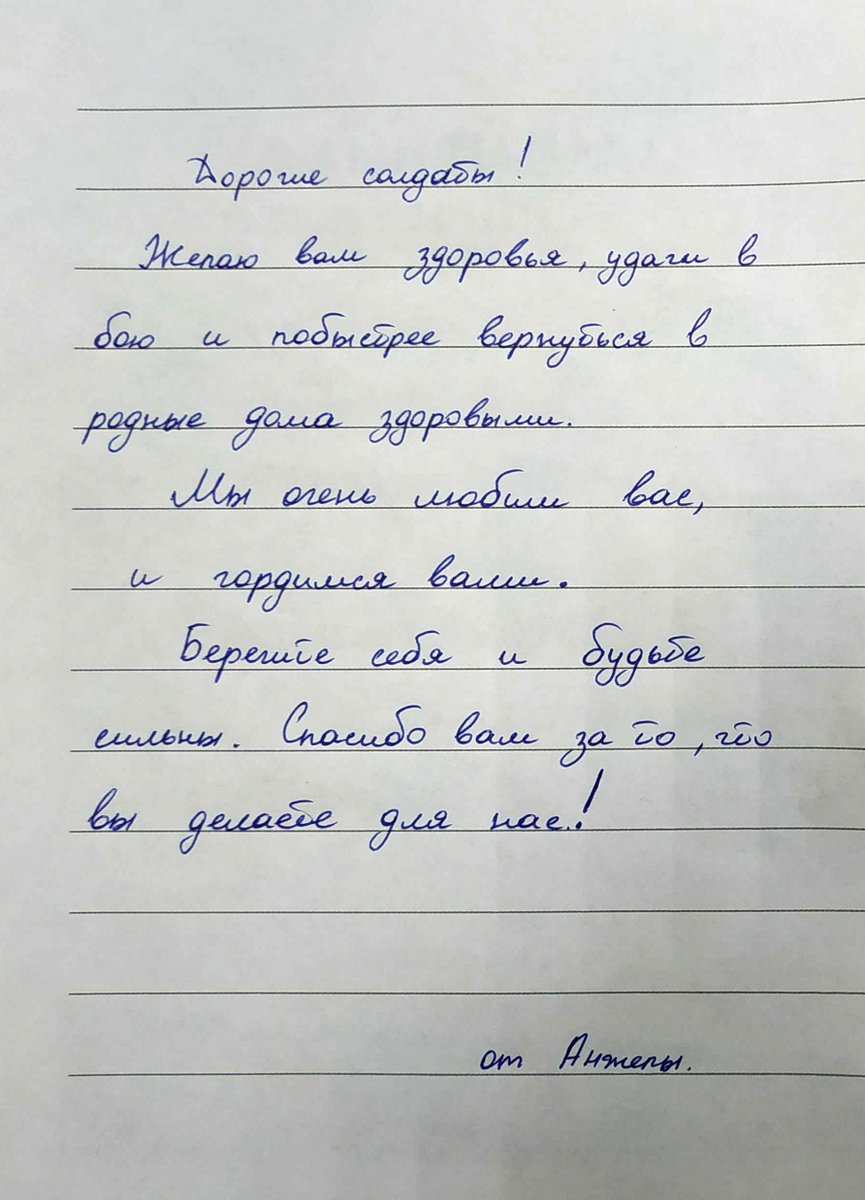 Дорогие солдаты!
Желаю вам здоровья, удачи в
бою и побыстрее вернуться в
родные дома здоровыми.
Мы очень любим вас,
и гордимся вами.
Берегите себя и будьте
сильны. Спасибо вам за то, что
вы делаете для нас!
от Анжелы.